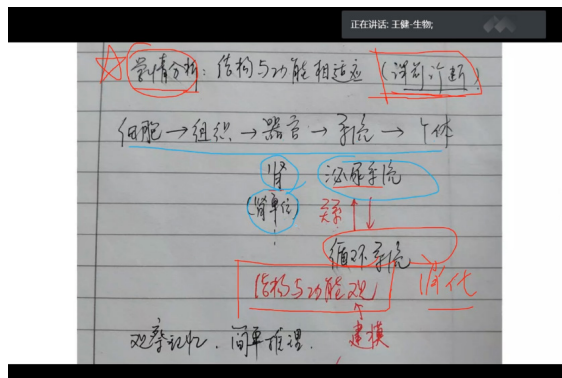 正在讲话: 王健-生物;
学情分析：结构与功能相适应 （课前诊断）
细胞→组织→器官→系统→个体
肾 泌尿系统
(肾单位) 关系
循环系统
结构与功能观 消化
观察记忆．简单推理． 建模